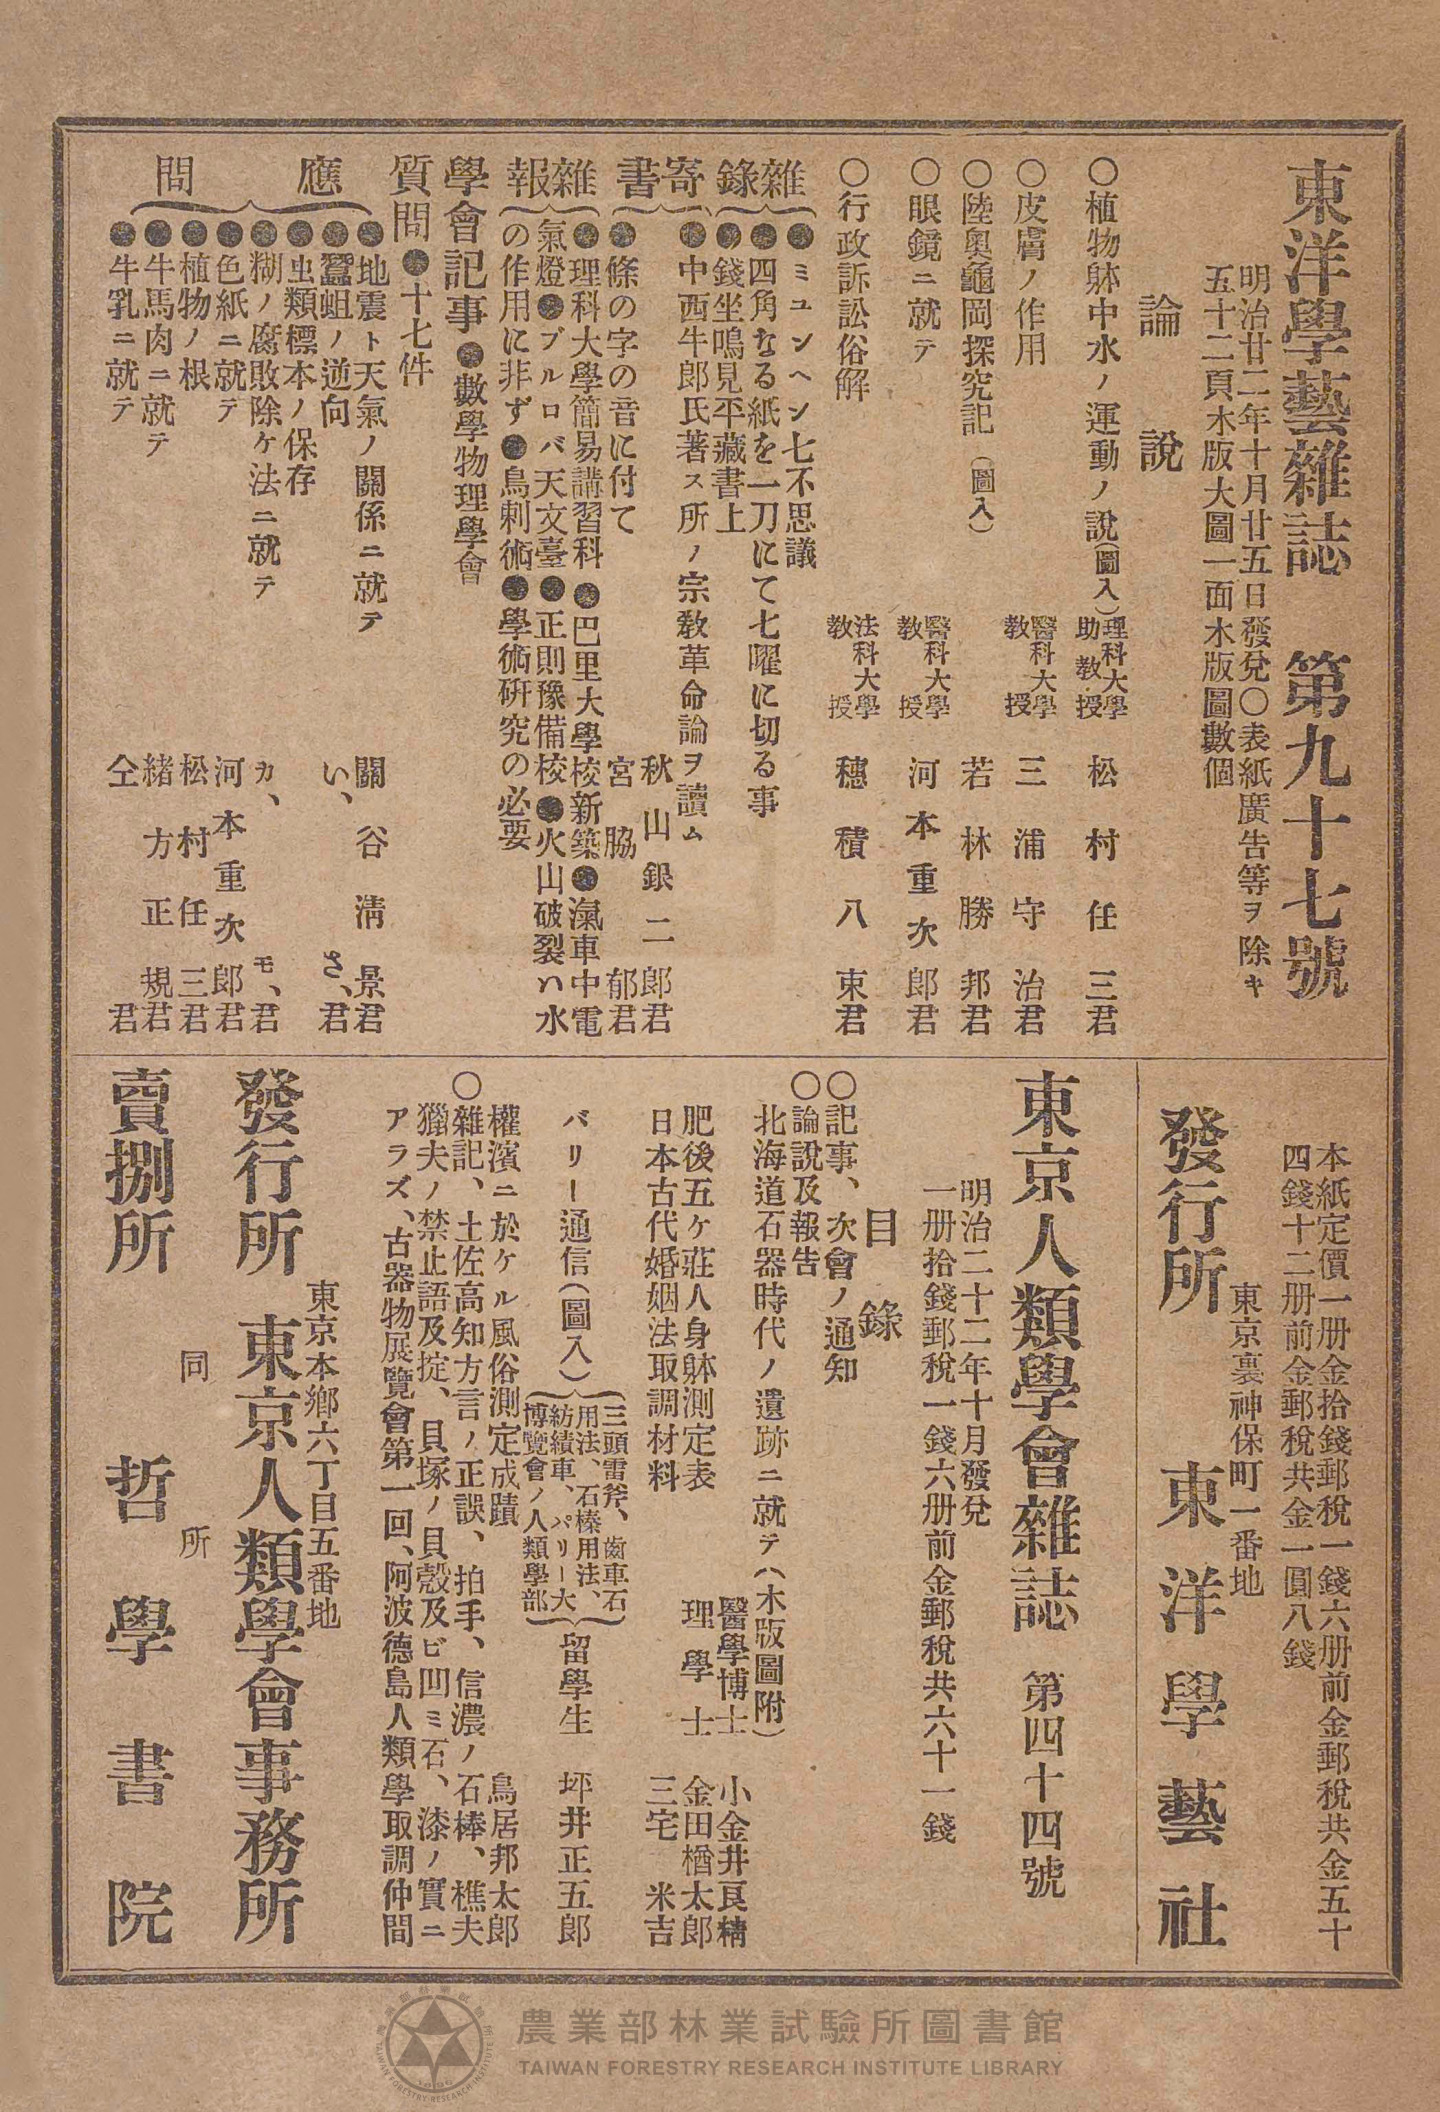 東洋學藝雜誌　第九十七號
明治廿二年十月廿五日發兌〇表紙廣告等ヲ除キ
五十二頁木版大圖一面木版圖數個
論　說
〇植物躰中水ノ運動ノ說(圖入)　理科大學助教授　松村任三君
〇皮膚ノ作用　醫科大學教授　三浦守治君
〇陸奧龜岡探究記(圖入)　若林勝邦君
〇眼鏡ニ就テ　醫科大學教授　河本重次郎君
〇行政訴訟俗解　法科大學教授　穗積八束君
雜錄
●ミュンヘン七不思議
●四角なる紙を一刀にて七曜に切る事
●錢坐鳴見平藏書上
寄書
●中西牛郎氏著ス所ノ宗敎革命論ヲ讀ム　秋山銀二郎君
●條の字の音に付て　宮脇郁君
雜報
●理科大學簡易講習科●巴里大學校新築●滊車中電
氣燈●ブルロバ天文臺●正則豫備校●火山破裂ハ水
の作用に非ず●鳥刺術●學術硏究の必要
學會記事●數學物理學會
質問●十七件
應問
●地震ト天氣ノ關係ニ就テ　關谷淸景君
●蠶蛆ノ逆向　い、さ、君
●虫類標本ノ保存
●糊ノ腐敗除ケ法ニ就テ　カ、モ、君
●色紙ニ就テ　河本重次郎君
●植物ノ根　松村任三君
●牛馬肉ニ就テ　緒方正規君
●牛乳ニ就テ　仝君
本紙定價一册金拾錢郵稅一錢六册前金郵稅共金五十
四錢十二册前金郵稅共金一圓八錢
東京裏神保町一番地
發行所　東洋學藝社
東京人類學會雜誌　第四十四號
明治二十二年十月發兌
一册拾錢郵稅一錢六册前金郵稅共六十一錢
目錄
〇記事、次會ノ通知
〇論說及報告
北海道石器時代ノ遺跡ニ就テ(木版圖附)
醫學博士　小金井良精
肥後五ケ莊人身躰測定表　理學士　金田楢太郎
日本古代婚姻法取調材料　三宅米吉
パリー通信(圖入)
三頭雷斧、齒車石
用法、石榛用法、
紡績車、パリー大
博覽會ノ人類學部
留學生　坪井正五郎
權濱ニ於ケル風俗測定成蹟　鳥居邦太郎
〇雜記、土佐高知方言ノ正誤、拍手、信濃ノ石棒、樵夫
獵夫ノ禁止語及掟、貝塚ノ貝殼及ビ凹ミ石、漆ノ實ニ
アラズ、古器物展覽會第一回、阿波德島人類學取調仲間
東京本鄕六丁目五番地
發行所　東京人類學會事務所
同所
賣捌所　哲學書院
農業部林業試驗所圖書館
TAIWAN FORESTRY RESEARCH INSTITUTE LIBRARY